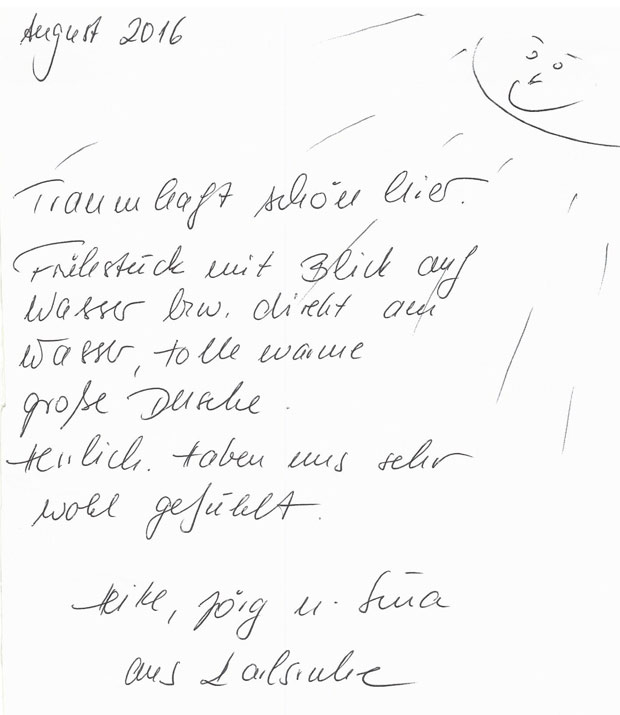 August 2016
Traumhaft schön hier.
Frühstück mit Blick auf
Wasser bzw. direkt am
Wasser, tolle warme
große Dusche.
Herrlich. Haben uns sehr
wohl gefühlt.
Heike, Jörg u. Sina
aus Karlsruhe